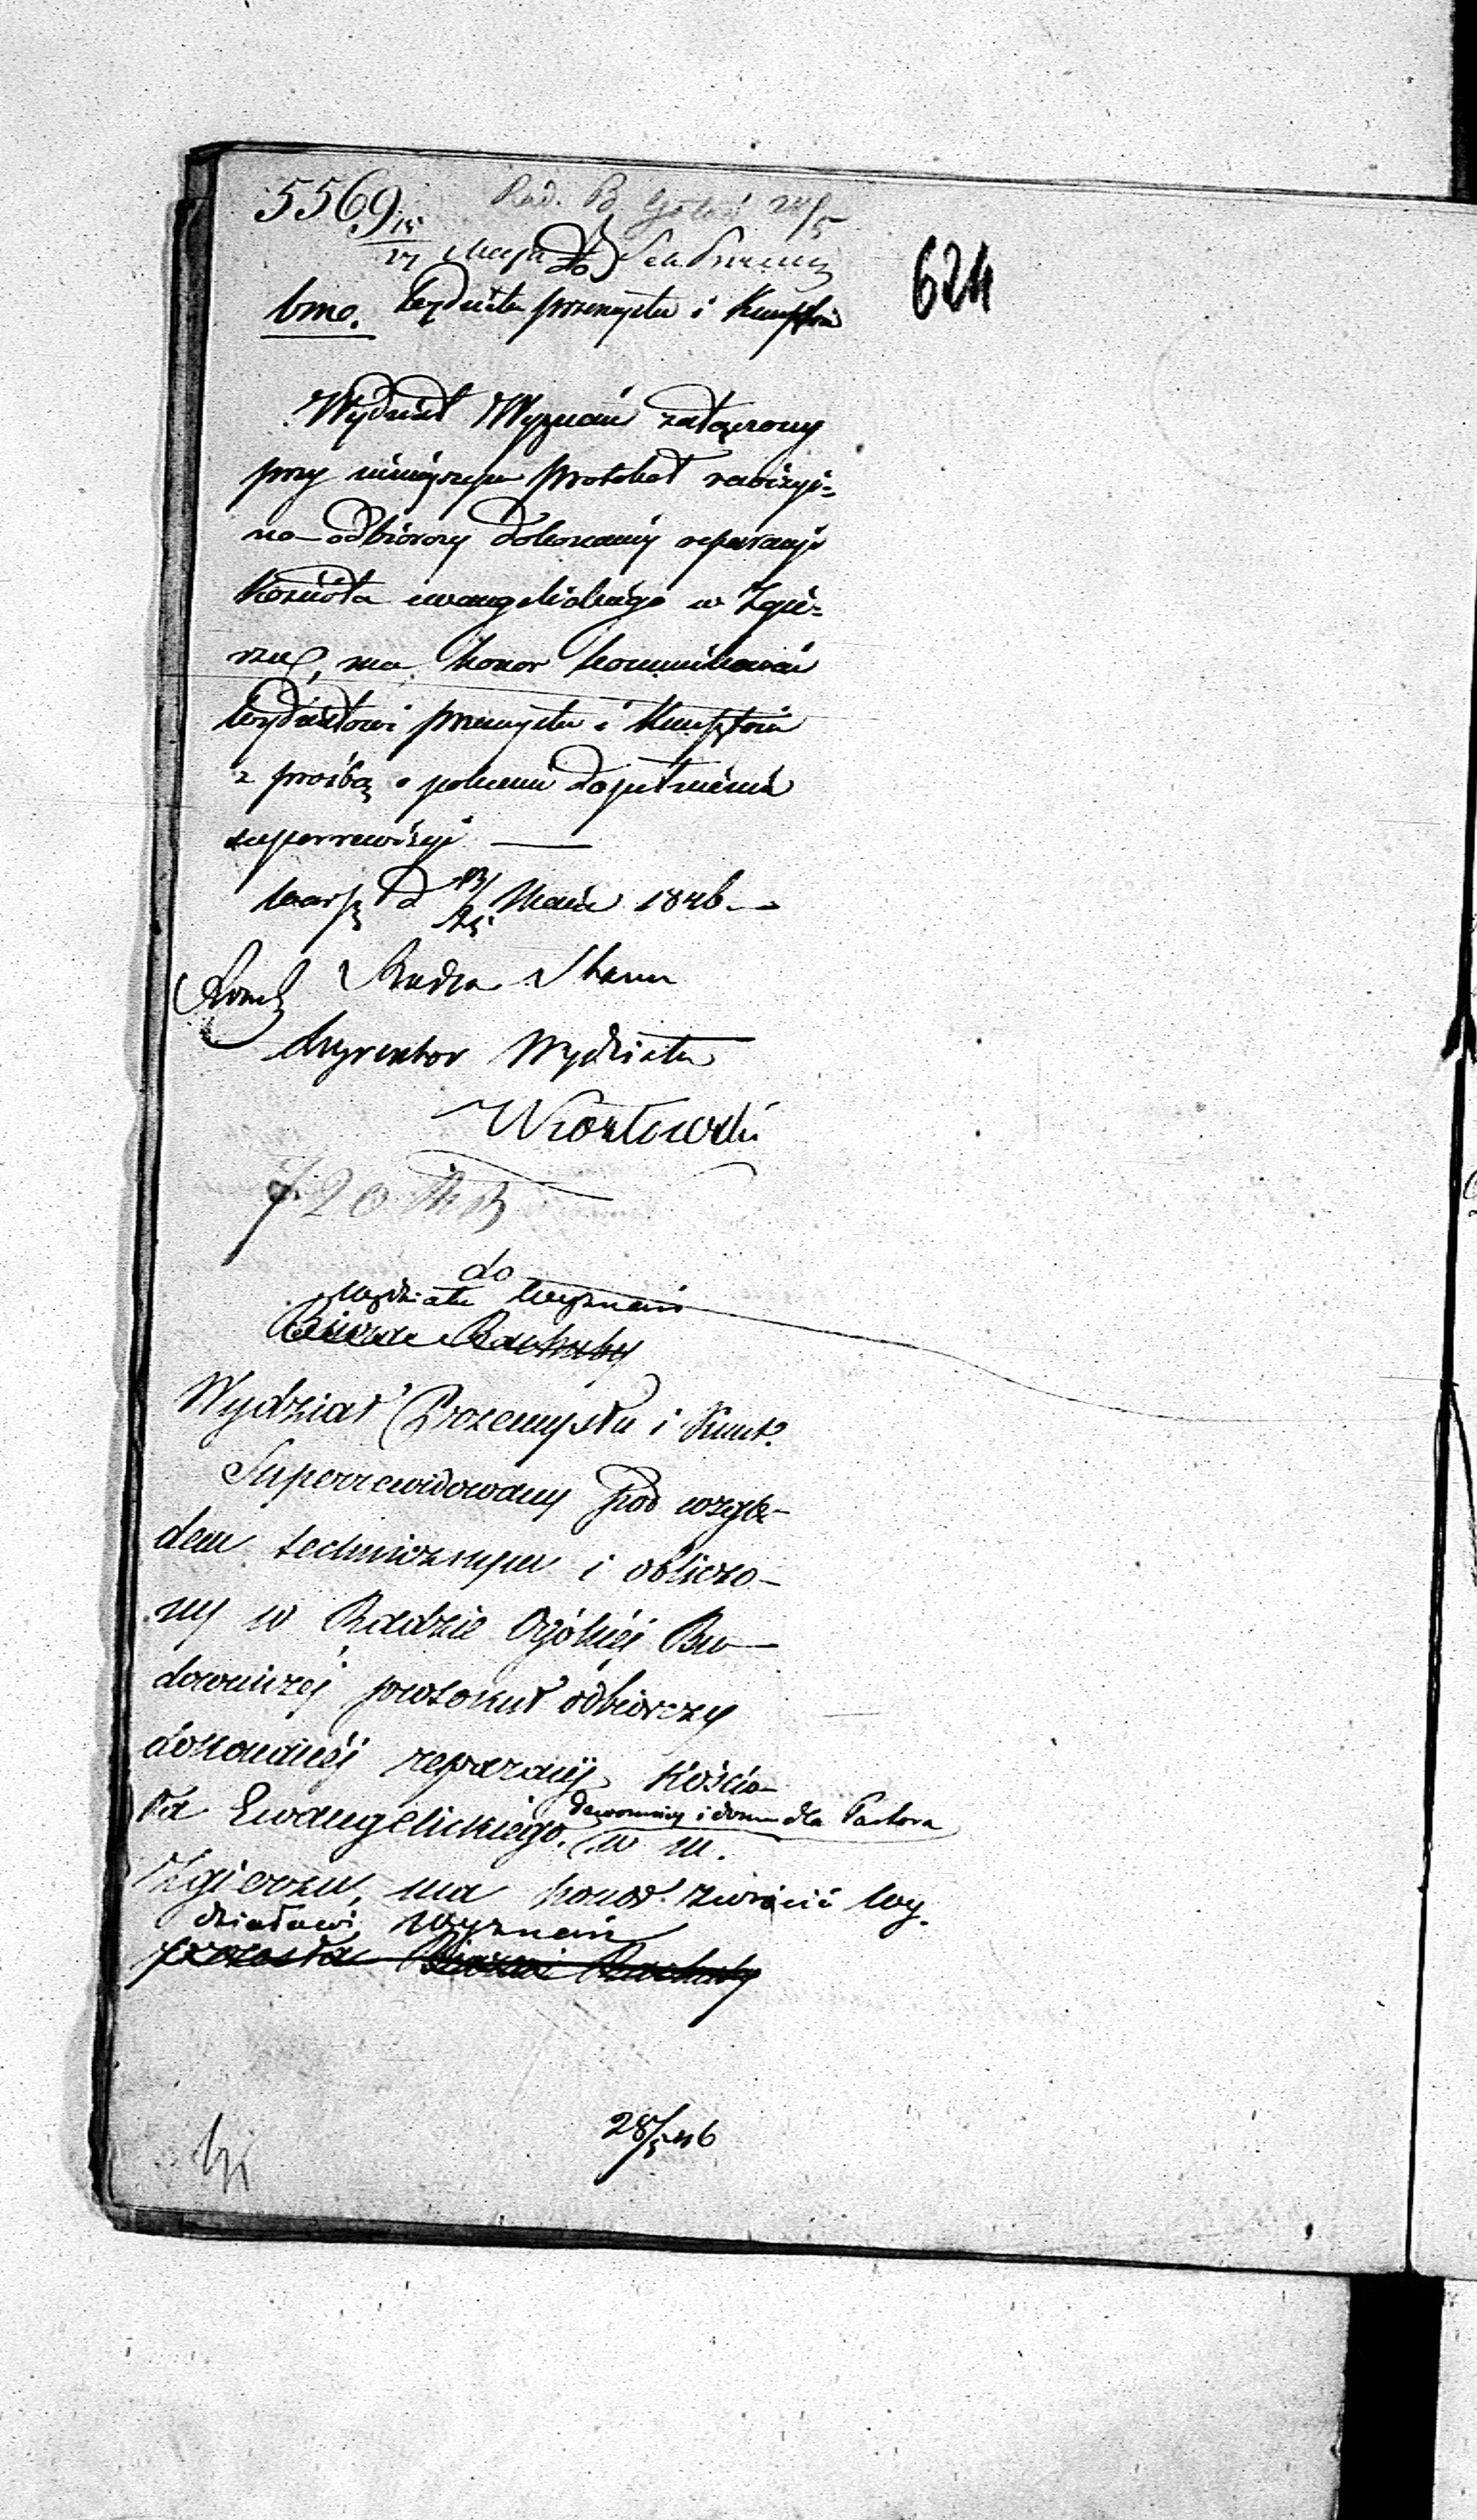 5569
Rad. B. 24/5
15/17 Maja do
bmo. Wydziału przemysłu i Kunsztów
624
Wydział Wyznań załączony
przy niniejszym protokoł rewizyj=
no-odbiorczy dokonanéj reparacyi
Kościoła ewangelickiego w Zgie=
rzu, ma honor kommunikować
Wydziałowi przemysłu i Kunsztów
z prośbą o polecenie dopełnienia
superrewizyi —
Warsz d Maia 1846 —
Radca Stanu
Dyrektor Wydziału
Kozłowski
720
do
Wydziału Wyznań
Biura Rachuby
Wydział Przemysłu i Kunszt.
Superrewidowany pod wzglę-
dem technicznym i obliczo-
ny w Radzie Ogólnéj Bu-
downiczéj protokuł odbiorczy
dokonanéj reparacyi Kościo-
ła Ewangelickiego, dzwonnicy i domu dla Pastora w m.
Zgierzu, ma honor zwrócić Wy-
działowi Wyznań
przesłać Biurowi Rachuby
28/5 46